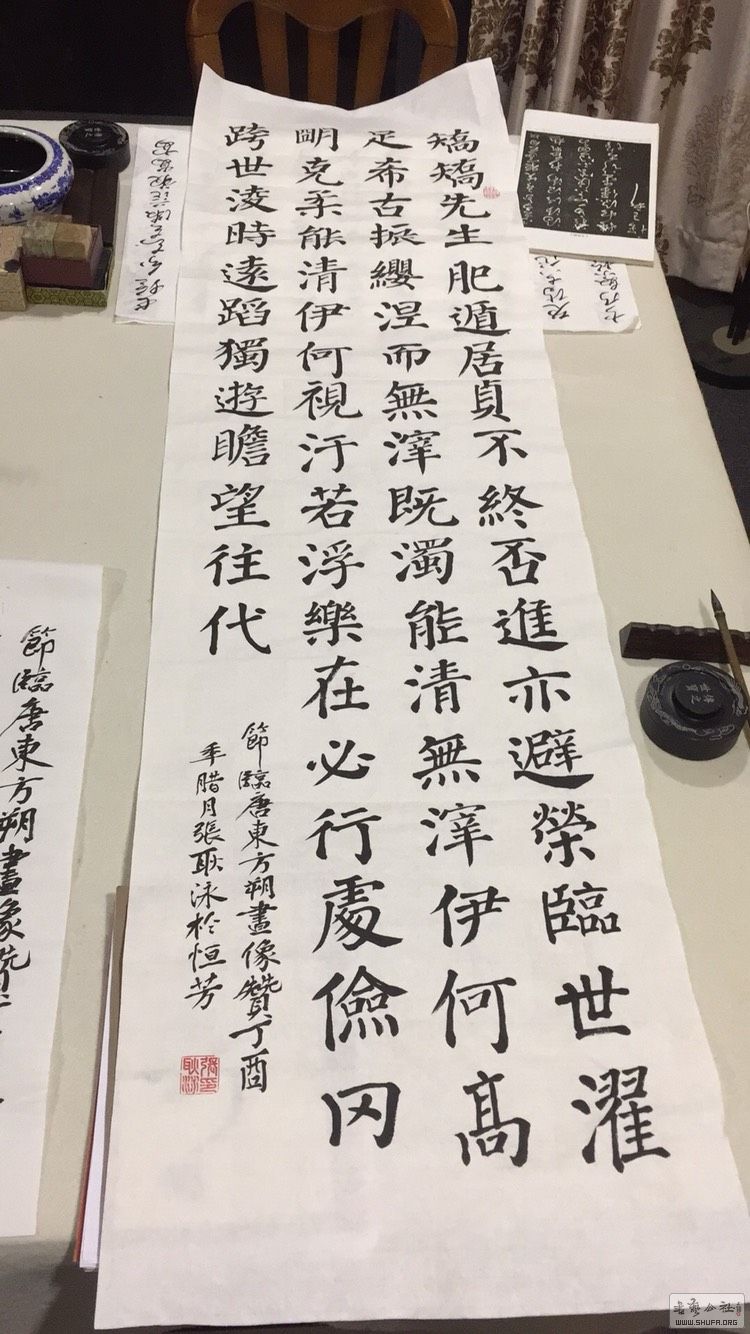 矯矯先生肥遁居貞不終否進亦避榮臨世濯
足希古振纓涅而無滓既濁能清無滓伊何高
明克柔能清伊何視汙若浮樂在必行處儉罔
跨世淩時遠蹈獨遊瞻望往代
節臨唐東方朔畫像贊丁酉
年腊月張耿泳於恒芳
張印耿泳
節臨唐東方朔畫像贊
書藝公社
WWW.SHUFA.ORG